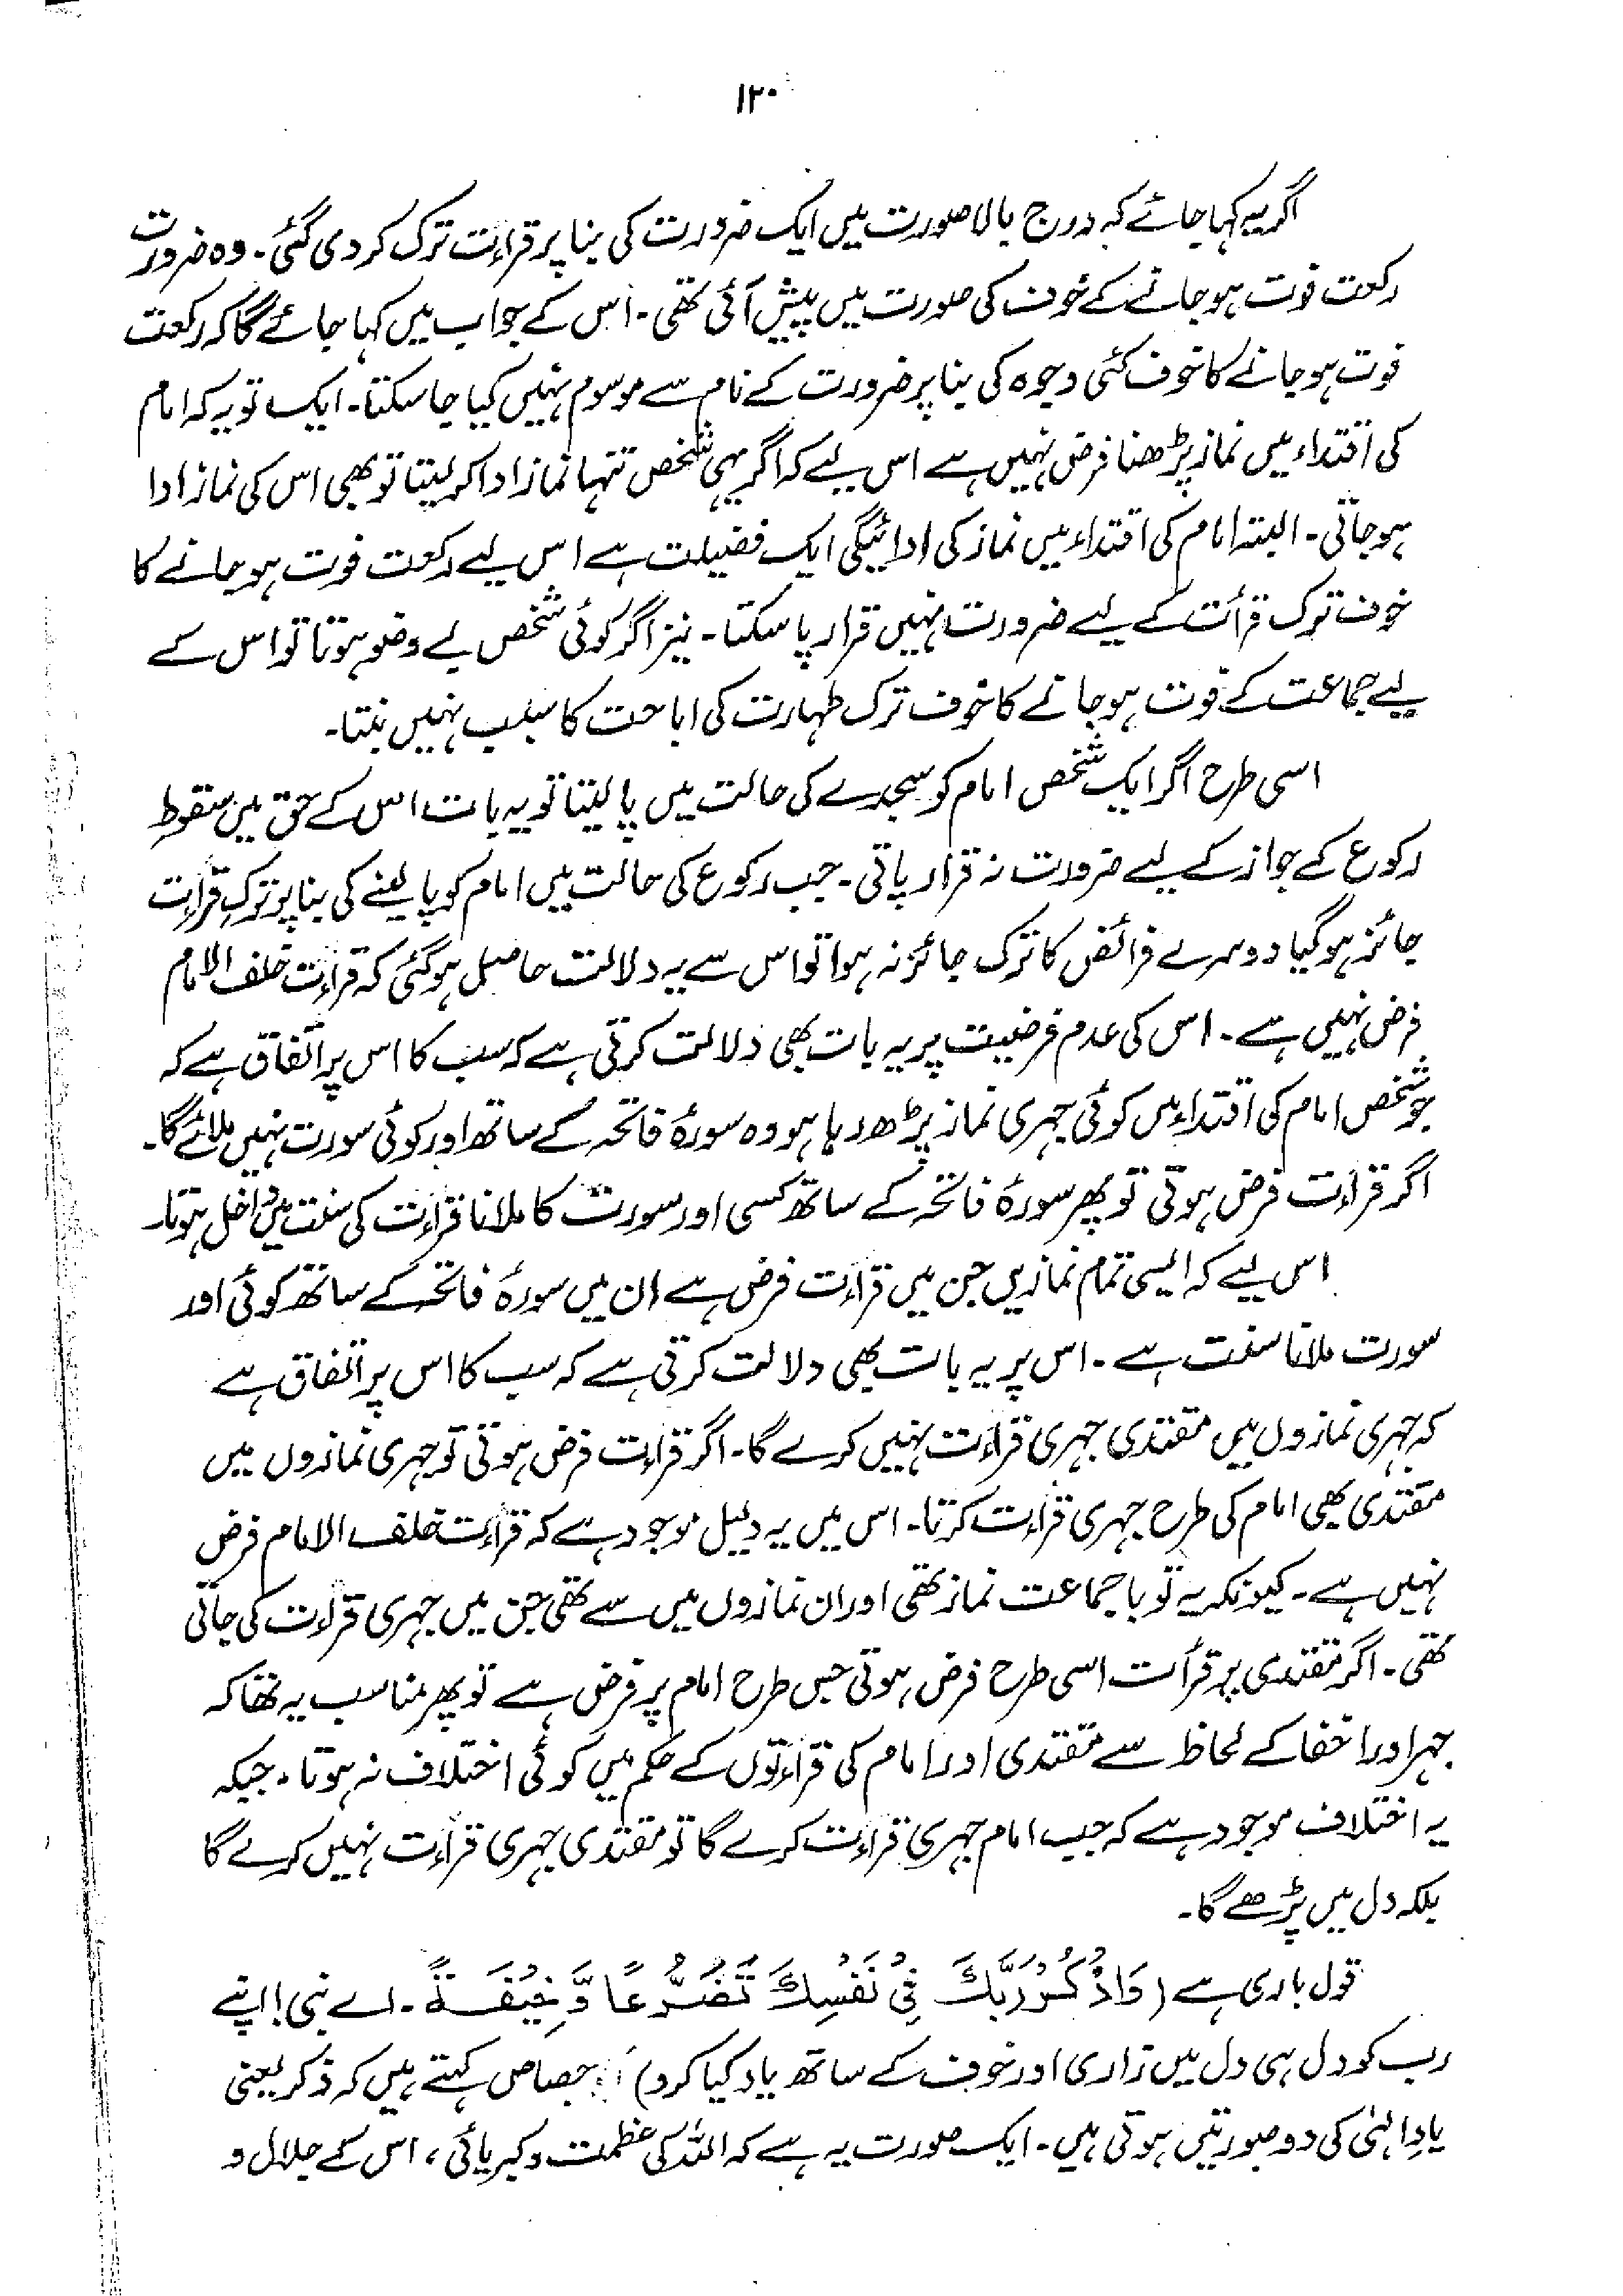 ۱۲۰
اگر یہ کہا جائے کہ درج بالا صورت میں ایک ضرورت کی بنا پر قراءت ترک کر دی گئی۔ وہ ضرورت
رکعت فوت ہو جانے کے خوف کی صورت میں پیش آئی تھی۔ اس کے جواب میں کہا جائے گا کہ رکعت
فوت ہو جانے کا خوف کئی وجوہ کی بنا پر ضرورت کے نام سے موسوم نہیں کیا جا سکتا۔ ایک تو یہ کہ امام
کی اقتداء میں نماز پڑھنا فرض نہیں ہے اس لیے کہ اگر یہی شخص تنہا نماز ادا کر لیتا تو بھی اس کی نماز ادا
ہو جاتی۔ البتہ امام کی اقتداء میں نماز کی ادائیگی ایک فضیلت ہے اس لیے رکعت فوت ہو جانے کا
خوف ترک قرأت کے لیے ضرورت نہیں قرار پا سکتا۔ نیز اگر کوئی شخص بے وضو ہوتا تو اس کے
لیے جماعت کے فوت ہو جانے کا خوف ترک طہارت کی اباحت کا سبب نہیں بنتا۔
اسی طرح اگر ایک شخص امام کو سجدے کی حالت میں پا لیتا تو یہ بات اس کے حق میں سقوط
رکوع کے جواز کے لیے ضرورت نہ قرار پاتی۔ جب رکوع کی حالت میں امام کو پا لینے کی بنا پر ترکِ قرأت
جائز ہو گیا دوسرے فرائض کا ترک جائز نہ ہوا تو اس سے یہ دلالت حاصل ہو گئی کہ قراءت خلف الامام
فرض نہیں ہے۔ اس کی عدم فرضیت پر یہ بات بھی دلالت کرتی ہے کہ سب کا اس پر اتفاق ہے کہ
جو شخص امام کی اقتداء میں کوئی جہری نماز پڑھ رہا ہو وہ سورۂ فاتحہ کے ساتھ اور کوئی سورت نہیں ملائے گا۔
اگر قراءت فرض ہوتی تو پھر سورۂ فاتحہ کے ساتھ کسی اور سورت کا ملانا قراءت کی سنت میں داخل ہوتا۔
اس لیے کہ ایسی تمام نمازیں جن میں قراءت فرض ہے ان میں سورۂ فاتحہ کے ساتھ کوئی اور
سورت ملانا سنت ہے۔ اس پر یہ بات بھی دلالت کرتی ہے کہ سب کا اس پر اتفاق ہے
کہ جہری نمازوں میں مقتدی جہری قراءت نہیں کرے گا۔ اگر قراءت فرض ہوتی تو جہری نمازوں میں
مقتدی بھی امام کی طرح جہری قراءت کرتا۔ اس میں یہ دلیل موجود ہے کہ قراءت خلف الامام فرض
نہیں ہے۔ کیونکہ یہ تو با جماعت نماز تھی اور ان نمازوں میں سے تھی جن میں جہری قراءت کی جاتی
تھی۔ اگر مقتدی پر قرأت اسی طرح فرض ہوتی جس طرح امام پر فرض ہے تو پھر مناسب یہ تھا کہ
جہر اور اخفا کے لحاظ سے مقتدی اور امام کی قراءتوں کے حکم میں کوئی اختلاف نہ ہوتا، جبکہ
یہ اختلاف موجود ہے کہ جب امام جہری قراءت کرے گا تو مقتدی جہری قراءت نہیں کرے گا
بلکہ دل میں پڑھے گا۔
قول باری ہے (وَاذْكُرْ رَّبَّكَ فِیْ نَفْسِكَ تَضَرُّعًا وَّخِیْفَةً۔ اے نبی! اپنے
رب کو دل ہی دل میں زاری اور خوف کے ساتھ یاد کیا کرو) جصاص کہتے ہیں کہ ذکر یعنی
یادِ الٰہی کی دو صورتیں ہوتی ہیں۔ ایک صورت یہ ہے کہ اللہ کی عظمت و کبریائی، اس کے جلال و